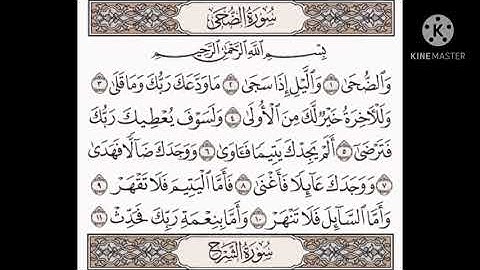 سُورَةُ الضُّحَىٰ
بِسْمِ اللَّهِ الرَّحْمَٰنِ الرَّحِيمِ
وَالضُّحَىٰ ١ وَاللَّيْلِ إِذَا سَجَىٰ ٢ مَا وَدَّعَكَ رَبُّكَ وَمَا قَلَىٰ ٣
وَلَلْآخِرَةُ خَيْرٌ لَّكَ مِنَ الْأُولَىٰ ٤ وَلَسَوْفَ يُعْطِيكَ رَبُّكَ
فَتَرْضَىٰ ٥ أَلَمْ يَجِدْكَ يَتِيمًا فَـَٔاوَىٰ ٦ وَوَجَدَكَ ضَالًّا فَهَدَىٰ
٧ وَوَجَدَكَ عَائِلًا فَأَغْنَىٰ ٨ فَأَمَّا الْيَتِيمَ فَلَا تَقْهَرْ ٩
وَأَمَّا السَّائِلَ فَلَا تَنْهَرْ ١٠ وَأَمَّا بِنِعْمَةِ رَبِّكَ فَحَدِّثْ ١١
سُورَةُ الشَّرْحِ
MADE WITH
KINEMASTER